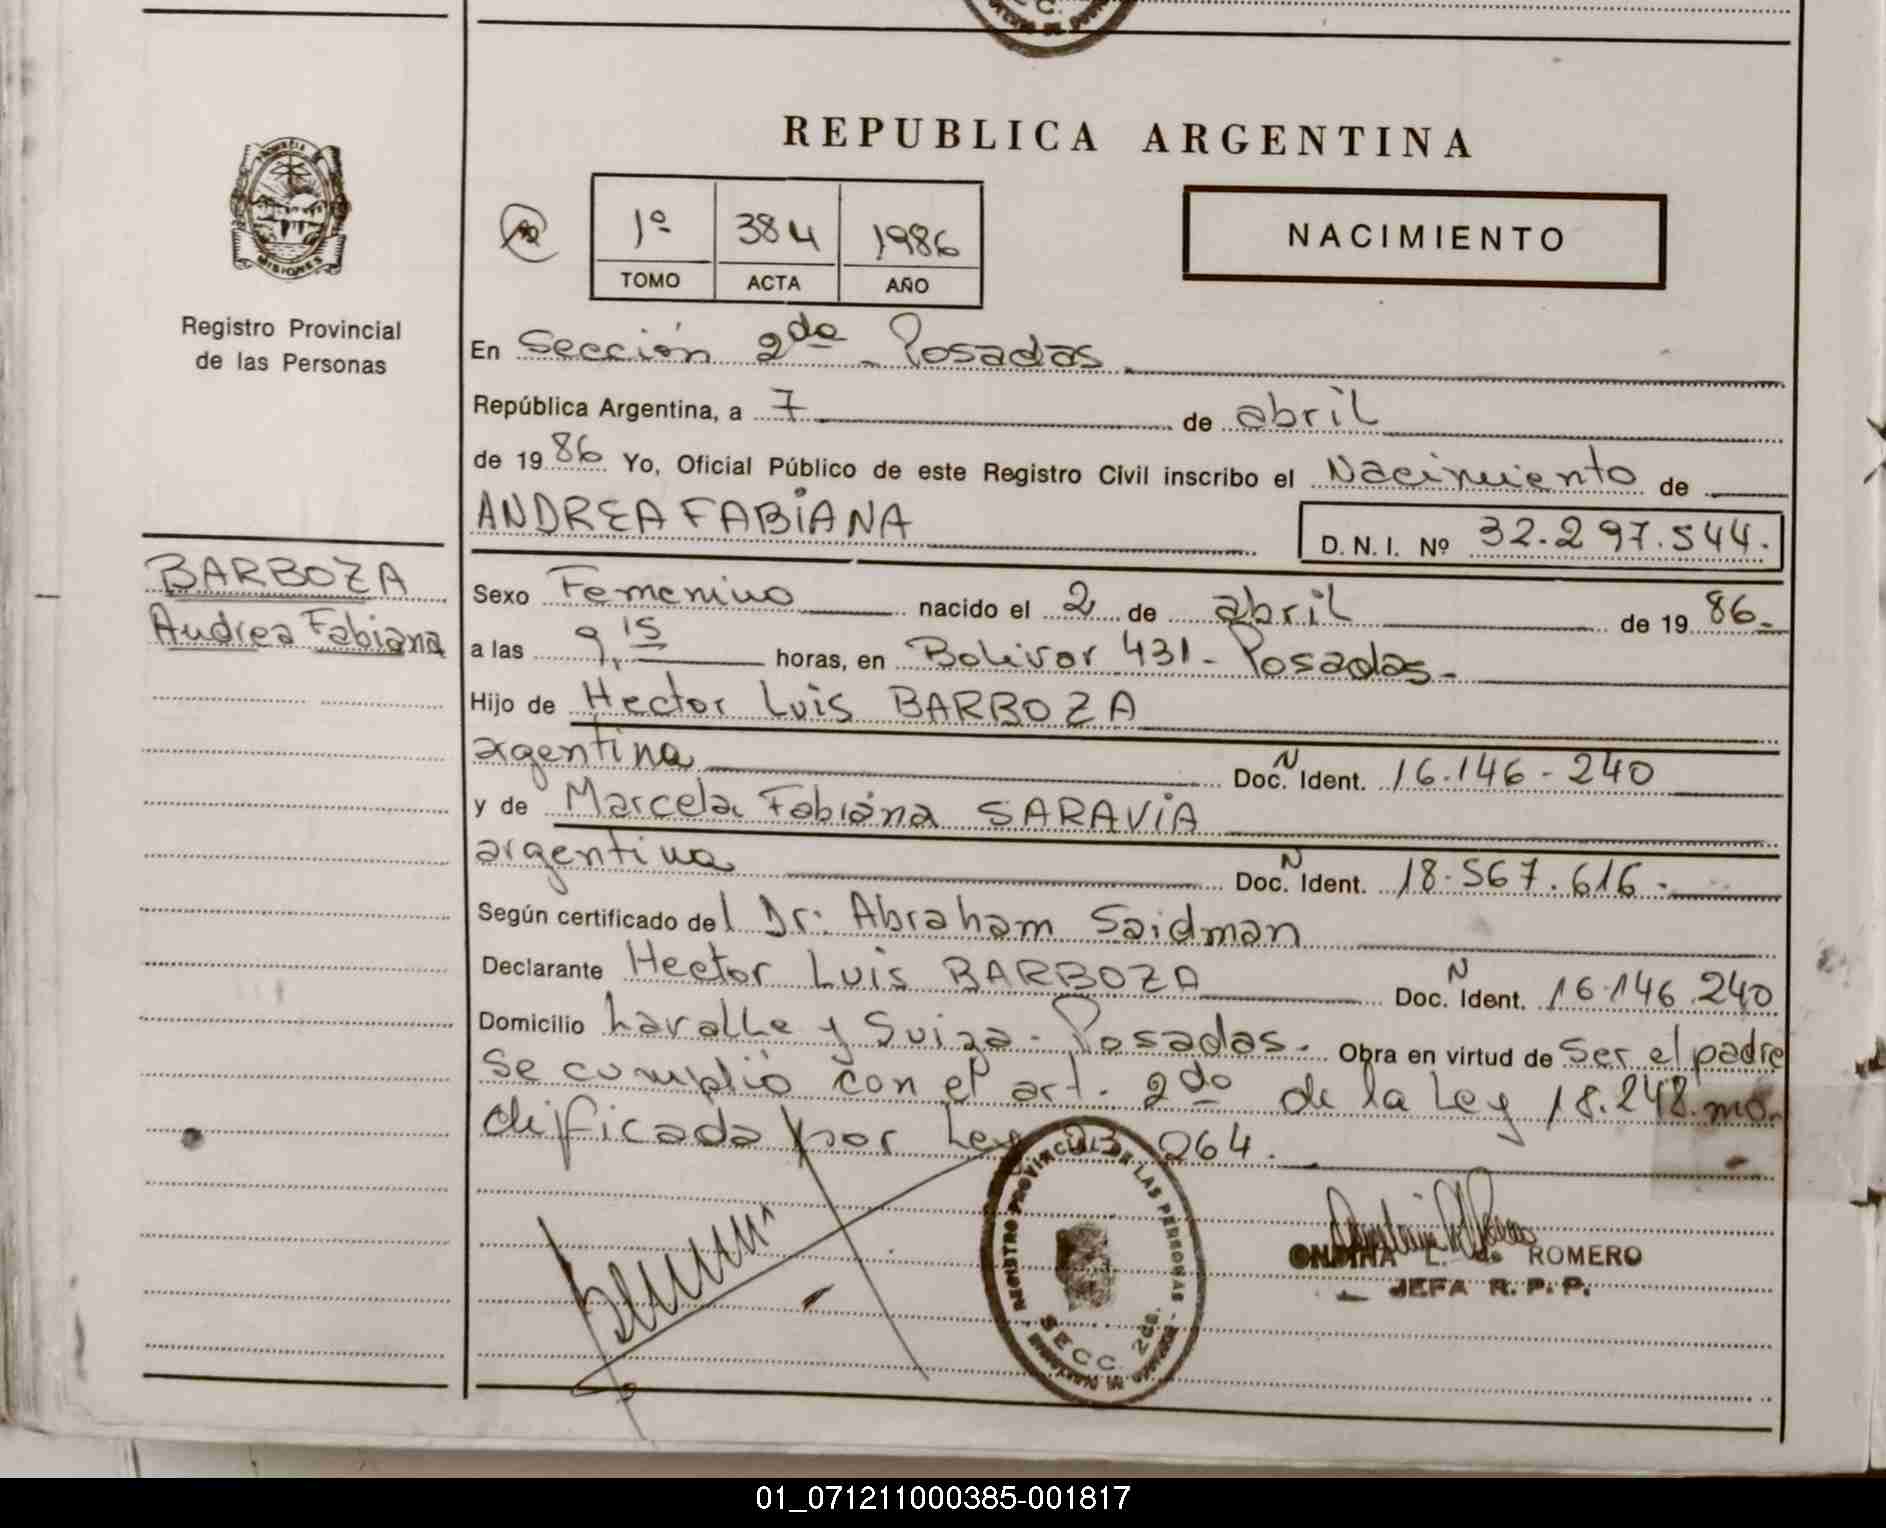 REPUBLICA ARGENTINA
PROVINCIA DE MISIONES
Registro Provincial
de las Personas
1º 384 1986
TOMO ACTA AÑO
NACIMIENTO
En Sección 2da - Posadas
República Argentina, a 7 de abril
de 1986 Yo, Oficial Público de este Registro Civil inscribo el Nacimiento de
ANDREA FABIANA
D. N. I. Nº 32.297.544.
BARBOZA
Andrea Fabiana
Sexo Femenino nacido el 2 de abril de 1986.
a las 9,15 horas, en Bolivar 431 - Posadas -
Hijo de Hector Luis BARBOZA
argentina Doc. N Ident. 16.146-240
y de Marcela Fabiána SARAVIA
argentina Doc. N Ident. 18.567.616.
Según certificado del Dr: Abraham Saidman
Declarante Hector Luis BARBOZA Doc. N Ident. 16.146.240
Domicilio Lavalle y Suiza - Posadas. Obra en virtud de ser el padre
se cumplió con el art. 2do de la Ley 18.248 mo-
dificada por Ley 23.264.
REGISTRO PROVINCIAL DE LAS PERSONAS
SECC. 2da.
ONDINA L. de ROMERO
JEFA R. P. P.
01_071211000385-001817